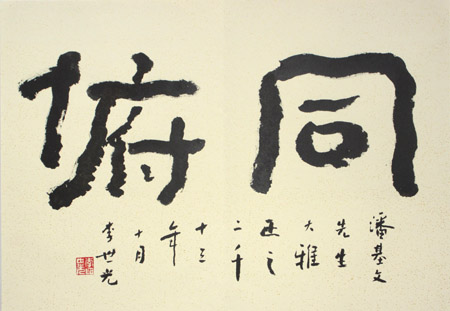 同俯
潘基文
先生
大雅
正之
二千
十三
年
十月
李世光